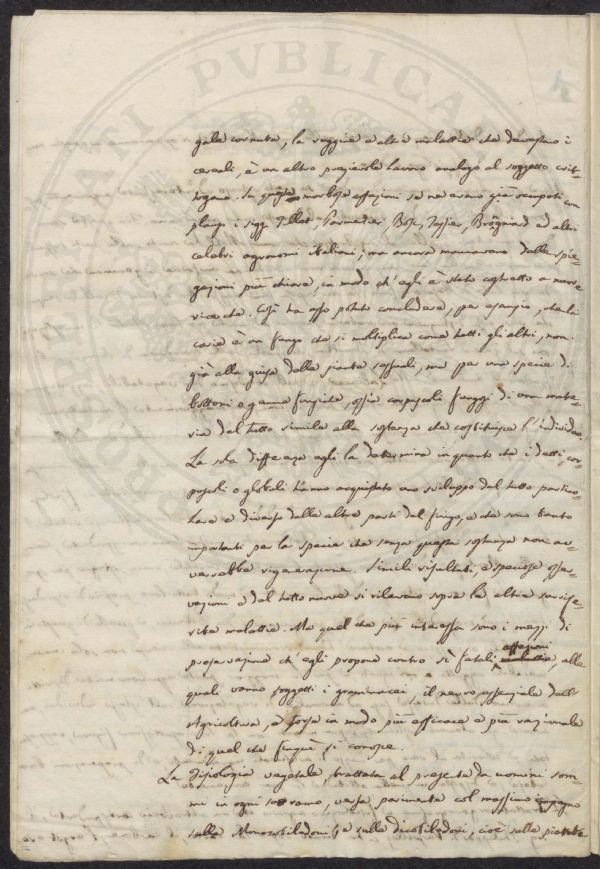 gala cornuta, la ruggine e altre malattie che devastano i
cereali, è un altro pregievole lavoro analogo al soggetto crit-
togamo. Di queste morbose affezioni se ne erano già occupati con
plauso i sigg. Tillet, Parmentier, Bosc, Tessier, Brogniard ed altri
celebri agronomi italiani; ma ancora mancavano delle spie-
gazioni più chiare, in modo ch'egli è stato costretto a nuove
ricerche. Così ha esso potuto concludere, per esempio, che la
carie è un fungo che si moltiplica come tutti gli altri, non
già alla guisa delle piante sessuali, ma per una specie di
bottoni o gemme fungite, ossia corpuscoli fungosi di una mate-
ria del tutto simile alla sostanza che costituisce l'individuo.
La sola differenza egli la determina in quanto che i detti cor-
puscoli o globuli hanno acquistato uno sviluppo del tutto partico-
lare e diverso dalle altre parti del fungo, e che sono tanto
importanti per la specie che senza questa sostanza non av-
verrebbe rigenerazione. Simili risultati, e speciose osser-
vazioni e del tutto nuove si rilevano sopra le altre surrife-
rite malattie. Ma quel che più interessa sono i mezzi di
preservazione ch'egli propone contro sì fatali affezioni alle
quali vanno soggetti i graminacei, il nervo essenziale dell'
Agricoltura, e forse in modo più efficace e più razionale
di quel che finquì si conosce.
La Fisiologia vegetale, trattata al presente da uomini som-
mi in ogni ramo, versa parimente col massimo impegno
sulle Monocotiledoni, e sulle dicotiledoni, cioè sulle piante